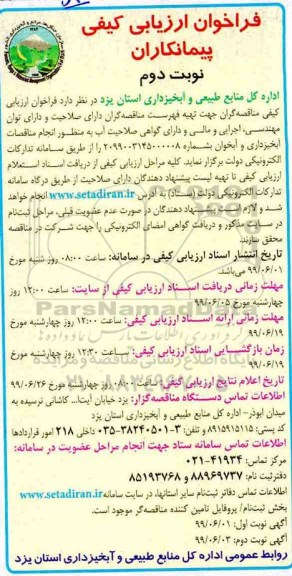 فراخوان ارزیابی کیفی
پیمانکاران
نوبت دوم
اداره کل منابع طبیعی و آبخیزداری استان یزد در نظر دارد فراخوان ارزیابی
کیفی مناقصه‌گران جهت تهیه فهرست مناقصه‌گران دارای صلاحیت و دارای توان
مهندسی، اجرایی و مالی و دارای گواهی صلاحیت آب به منظور انجام مناقصات
آبخیزداری و آبخوان بشماره ۲۰۹۹۰۰۳۱۴۵۰۰۰۰۰۸ را از طریق سامانه تدارکات
الکترونیکی دولت برگزار نماید. کلیه مراحل ارزیابی کیفی از دریافت اسناد استعلام
ارزیابی کیفی تا تهیه لیست پیشنهاد دهندگان دارای صلاحیت از طریق درگاه سامانه
تدارکات الکترونیکی دولت (ستاد) به آدرس www.setadiran.ir انجام خواهد
شد و لازم است پیشنهاد دهندگان در صورت عدم عضویت قبلی، مراحل ثبت‌نام
در سایت مذکور و دریافت گواهی امضای الکترونیکی را جهت شرکت در مناقصه
محقق سازند.
تاریخ انتشار اسناد ارزیابی کیفی در سامانه: ساعت ۰۸:۰۰ روز شنبه مورخ
۹۹/۰۶/۰۱ می‌باشد.
مهلت زمانی دریافت اسناد ارزیابی کیفی از سایت: ساعت ۱۲:۰۰ روز
چهارشنبه مورخ ۹۹/۰۶/۰۵
مهلت زمانی ارائه اسناد ارزیابی کیفی: ساعت ۱۲:۰۰ روز چهارشنبه مورخ
۹۹/۰۶/۱۹
زمان بازگشایی اسناد ارزیابی کیفی: ساعت ۱۲:۳۰ روز چهارشنبه مورخ
۹۹/۰۶/۱۹
تاریخ اعلام نتایج ارزیابی کیفی: ساعت ۰۸:۰۰ روز چهارشنبه مورخ ۹۹/۰۶/۲۶
اطلاعات تماس دستگاه مناقصه‌گزار: یزد خیابان آیت‌ا... کاشانی نرسیده به
میدان ابوذر- اداره کل منابع طبیعی و آبخیزداری استان یزد
کد پستی: ۸۹۱۵۹۱۵۱۱۵ و تلفن: ۳-۳۸۲۴۰۵۰۱-۰۳۵ داخلی ۲۱۸ امور قراردادها
اطلاعات تماس سامانه ستاد جهت انجام مراحل عضویت در سامانه:
مرکز تماس: ۴۱۹۳۴-۰۲۱
دفتر ثبت نام: ۸۸۹۶۹۷۳۷ و ۸۵۱۹۳۷۶۸
اطلاعات تماس دفاتر ثبت‌نام سایر استانها، در سایت سامانه www.setadiran.ir
بخش ثبت‌نام/ پروفایل تامین کننده مناقصه‌گر موجود است.
آگهی نوبت اول: ۹۹/۰۶/۰۱
آگهی نوبت دوم: ۹۹/۰۶/۰۲
روابط عمومی اداره کل منابع طبیعی و آبخیزداری استان یزد